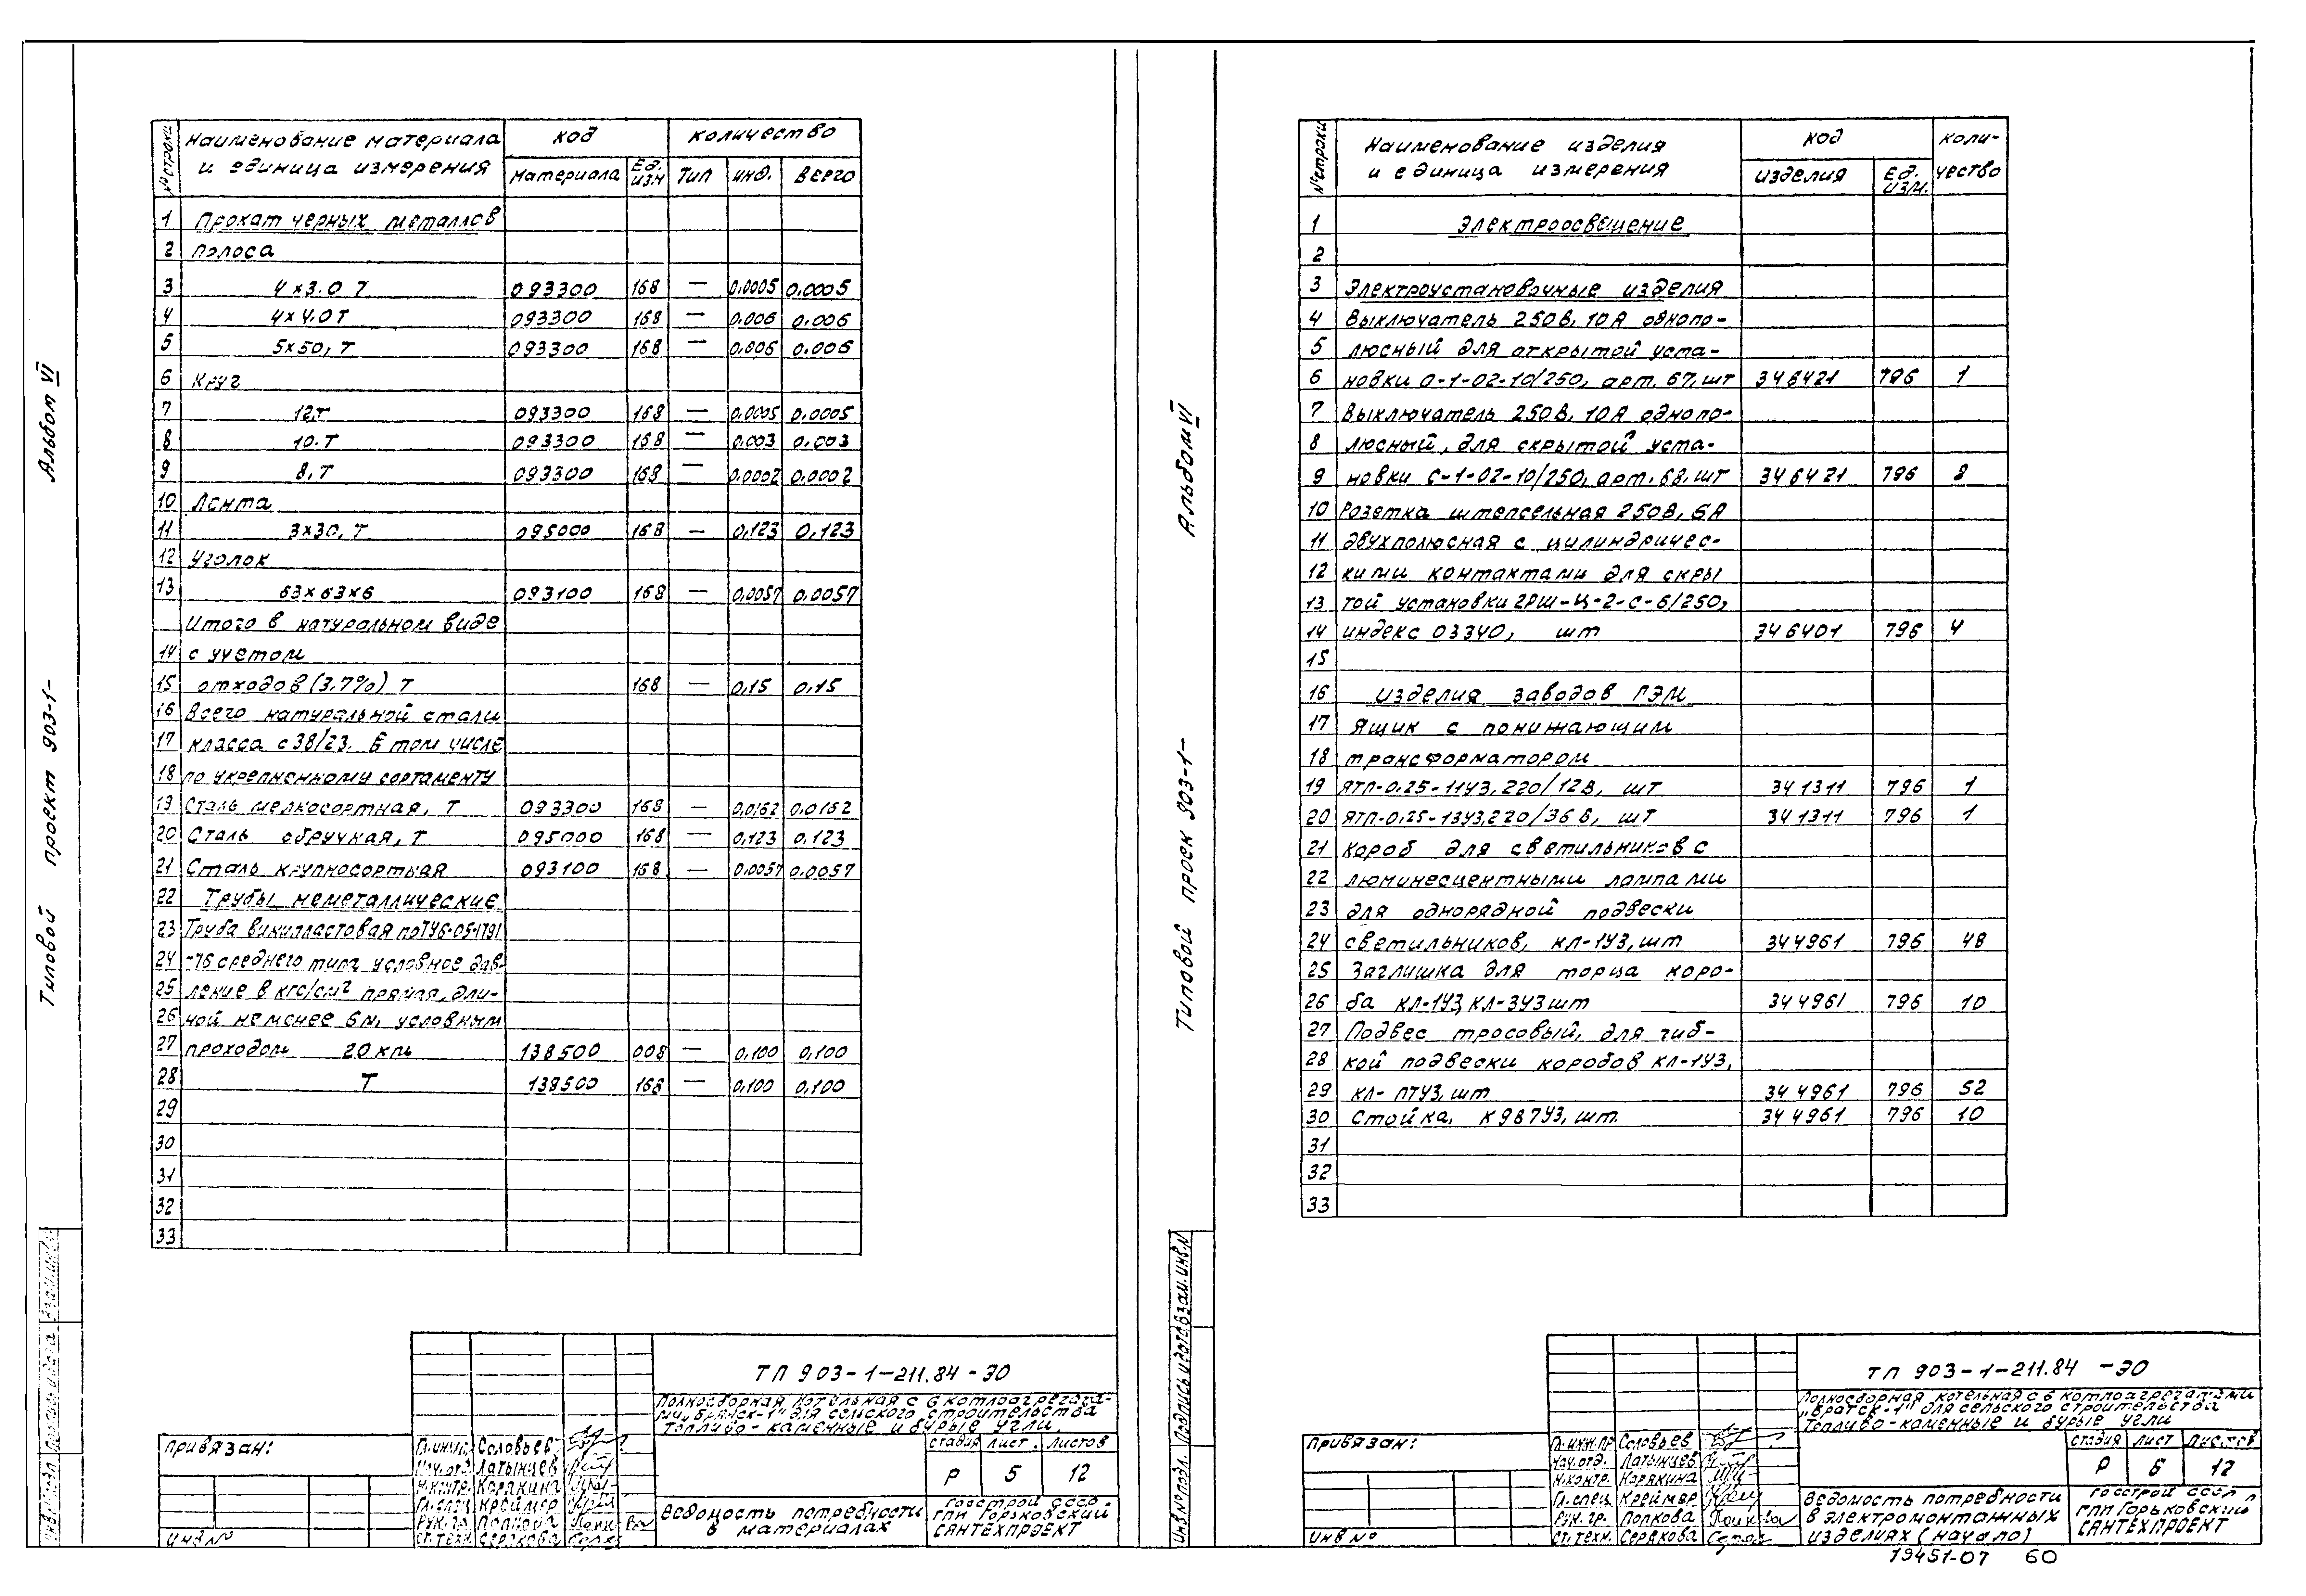 Альбом VI
Типовой проект 903-1-
№ строки
Наименование материала и единица измерения
код
количество
материала
Ед. изм
тип
инд.
всего
1 Прокат черных металлов
2 полоса
3 4×3.0 Т 093300 168 — 0,0005 0,0005
4 4×4.0 Т 093300 168 — 0.006 0.006
5 5×50, Т 093300 168 — 0.006 0.006
6 Круг
7 12,т 093300 168 — 0.0005 0.0005
8 10. Т 093300 168 — 0.003 0.003
9 8, Т 093300 168 — 0.0002 0.0002
10 Лента
11 3×30, Т 095000 168 — 0,123 0,123
12 Уголок
13 63×63×6 093100 168 — 0.0057 0.0057
Итого в натуральном виде
14 с учетом
15 отходов (3,7%) Т 168 — 0,15 0,15
16 Всего натуральной стали
17 класса с 38/23. В том числе
18 по укрепненному сортаменту
19 Сталь мелкосортная, Т 093300 168 — 0,0162 0,0162
20 Сталь обручная, Т 095000 168 — 0,123 0,123
21 Сталь крупносортная 093100 168 — 0.0057 0.0057
22 Трубы неметаллические
23 Труба винипластовая по ТУ6-05-1791
24 -76 среднего типа условное дав-
25 ление в кгс/см² прямая, дли-
26 ной не менее 6м, условным
27 проходом 20 км 138500 008 — 0,100 0,100
28 Т 138500 168 — 0,100 0,100
29
30
31
32
33
Привязан:
инв N
Соловьев
Нач.отд. Латынцев
Н.контр. Корякина
Гл.спец Креймер
Рук. гр. Попкова
Ст.техн. Серякова
ТП 903-1-211.84 -ЭО
Полносборная котельная с 6 котлоагрегата-
ми „Братск-1" для сельского строительства
Топливо - каменные и бурые угли.
стадия лист листов
Р 5 12
Ведомость потребности
в материалах
Госстрой СССР
ГПИ Горьковский
САНТЕХПРОЕКТ
Альбом VI
Типовой проек 903-1-
Инв.№ подл. Подпись и дата Взам. инв. N
№ строки
Наименование изделия и единица измерения
код
изделия
Ед. изм.
коли-
чество
1 Электроосвещение
2
3 Электроустановочные изделия
4 Выключатель 250В, 10А однопо-
5 люсный для открытой уста-
6 новки О-1-02-10/250, арт. 67, шт 346421 796 1
7 Выключатель 250В, 10А однопо-
8 люсный, для скрытой уста-
9 новки С-1-02-10/250, арт. 68, шт 346421 796 8
10 Розетка штепсельная 250В, 6А
11 двухполюсная с цилиндричес-
12 кими контактами для скры
13 той установки 2РШ-Ц-2-С-6/250,
14 индекс 03340, шт 346401 796 4
15
16 изделия заводов ГЭМ
17 Ящик с понижающим
18 трансформатором
19 ЯТП-0,25-11У3, 220/12В, шт 341311 796 1
20 ЯТП-0,25-13У3, 220/36 В, шт 341311 796 1
21 Короб для светильников с
22 люминесцентными лампами
23 для однорядной подвески
24 светильников, КЛ-1У3, шт 344961 796 48
25 Заглушка для торца коро-
26 ба КЛ-1У3, КЛ-3У3 шт 344961 796 10
27 Подвес тросовый, для гиб-
28 кой подвески коробов КЛ-1У3,
29 КЛ-ПТУ3, шт 344961 796 52
30 Стойка, К987У3, шт. 344961 796 10
31
32
33
Привязан:
инв №
Гл.инж.пр Соловьев
Нач.отд. Латынцев
Н.контр. Корякина
Гл.спец Креймер
Рук. гр. Попкова
Ст.техн. Серякова
ТП 903-1-211.84 -ЭО
Полносборная котельная с 6 котлоагрегатами
„Братск-1" для сельского строительства
Топливо - каменные и бурые угли
стадия лист листов
Р 6 12
Ведомость потребности
в электромонтажных
изделиях (начало)
Госстрой СССР
ГПИ Горьковский
САНТЕХПРОЕКТ
19451-07 60